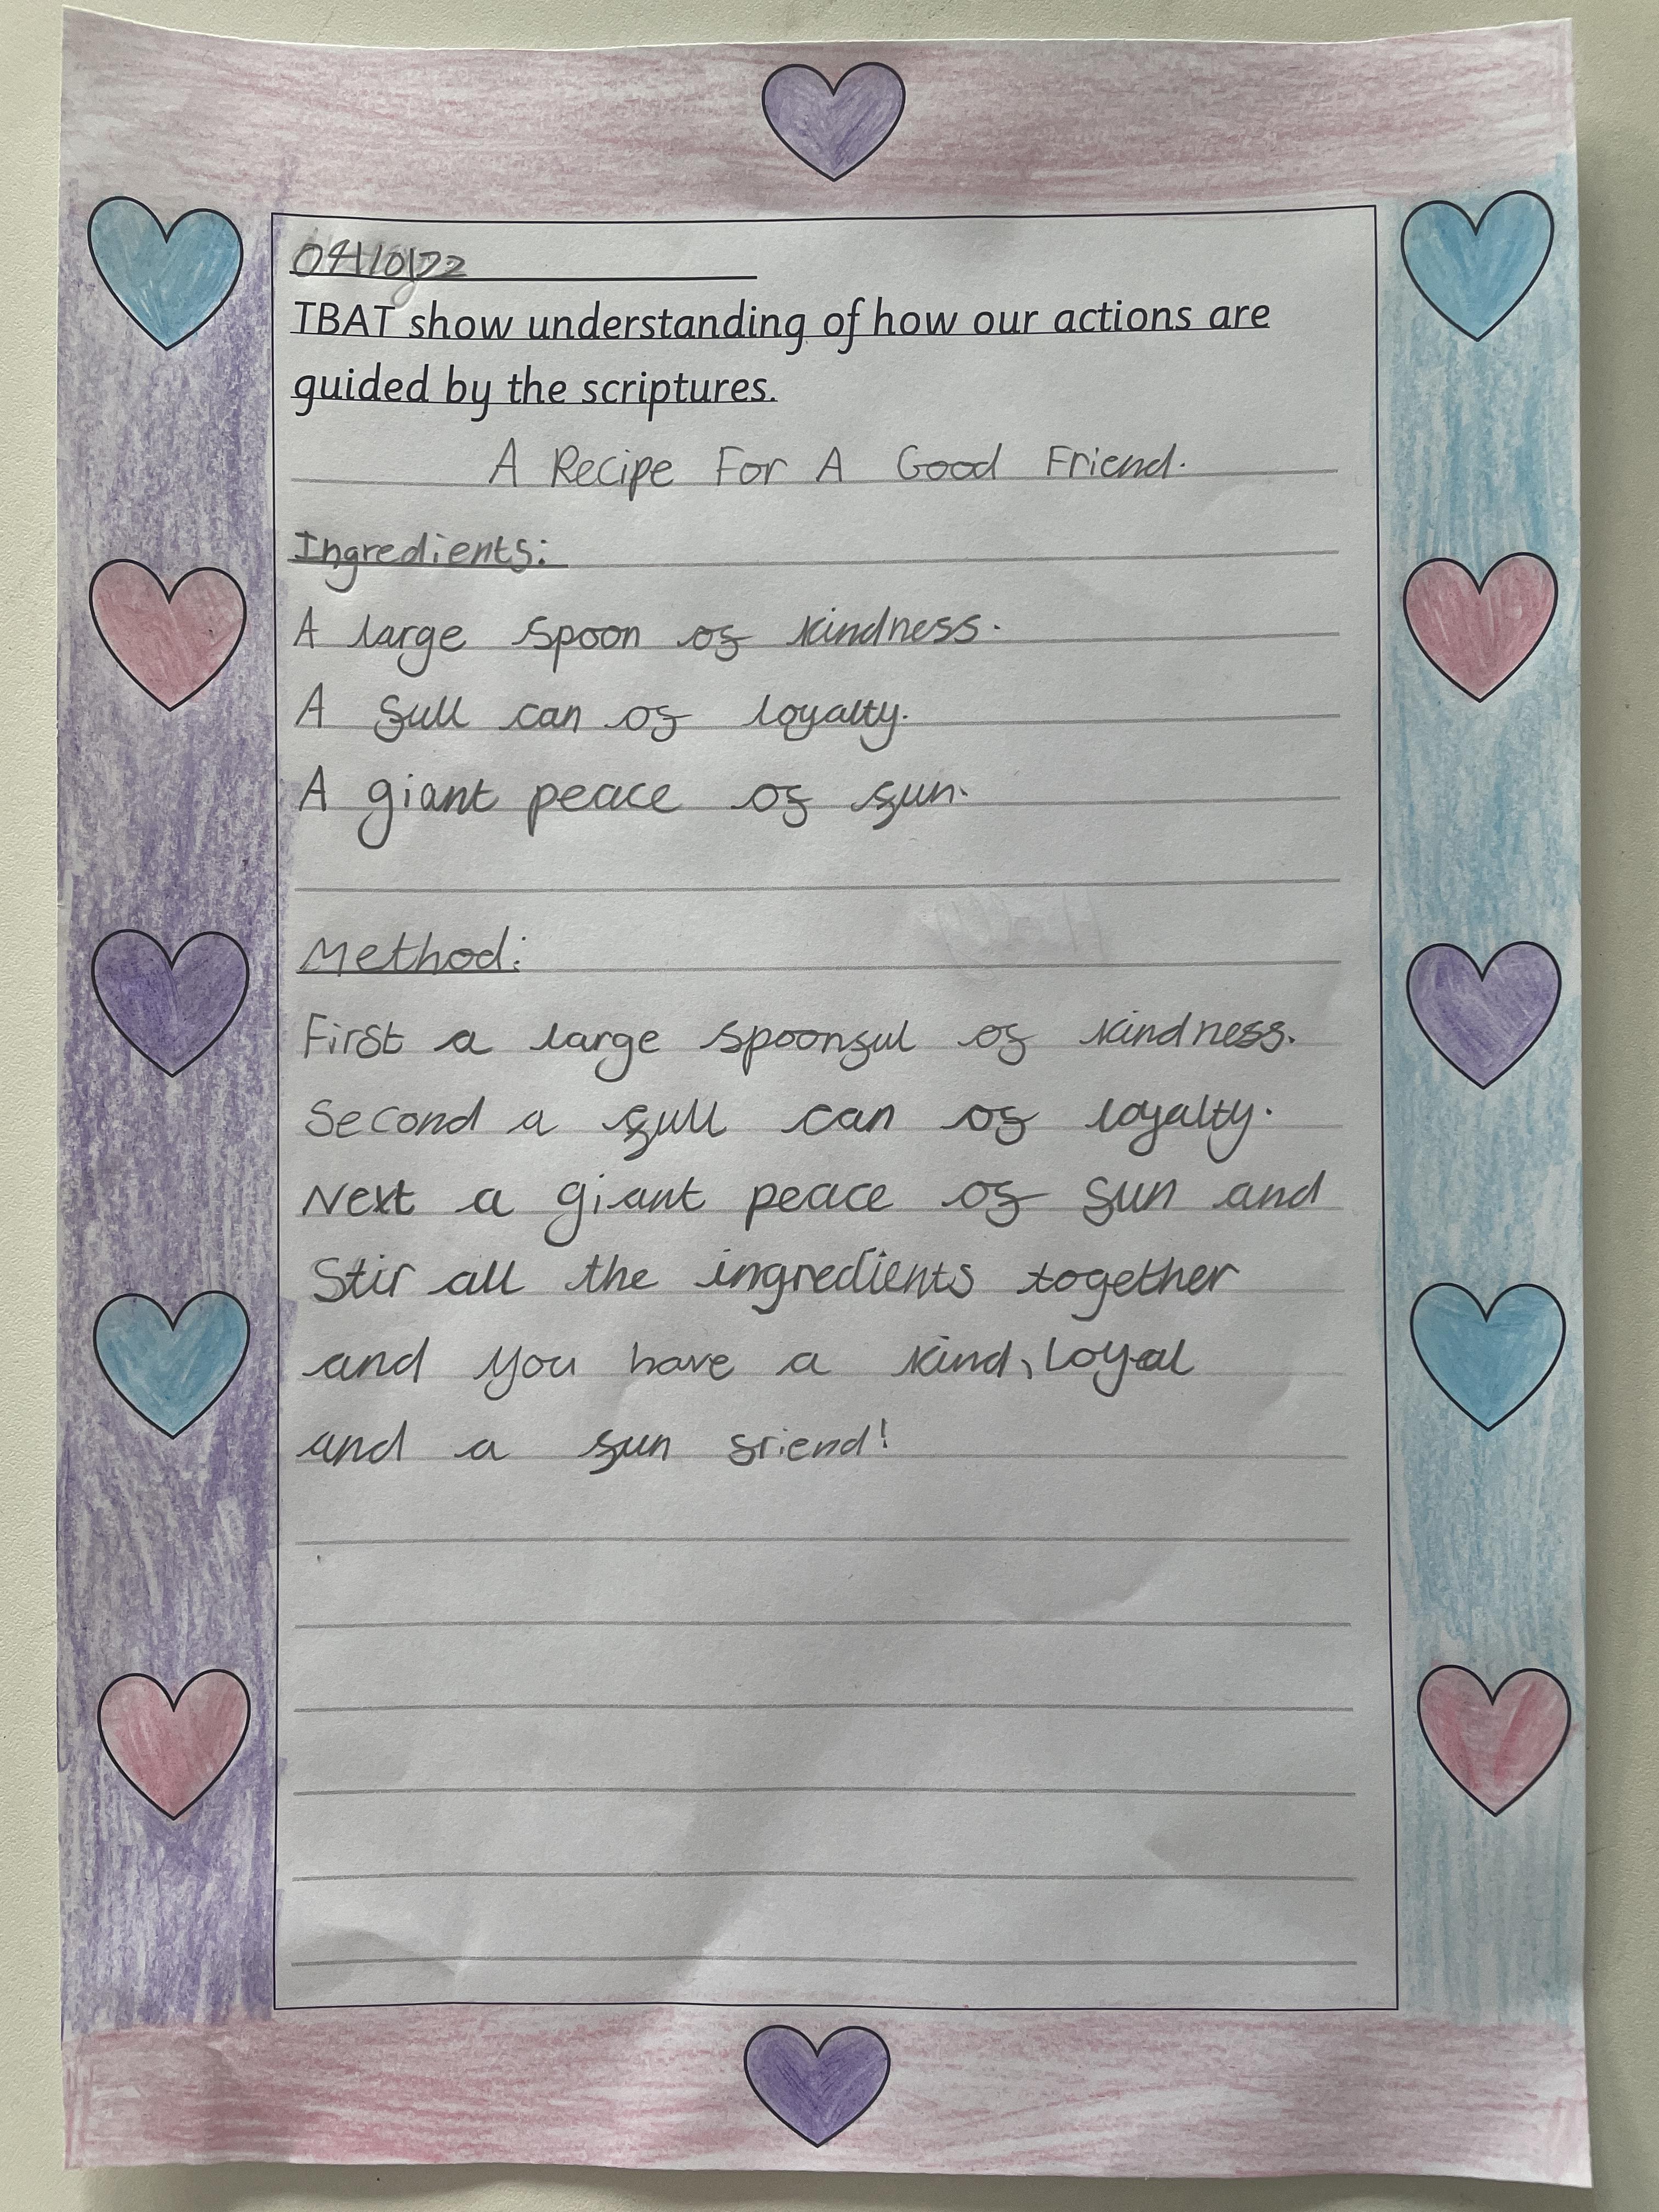 04/10/22
TBAT show understanding of how our actions are
guided by the scriptures.
A Recipe For A Good Friend.
Ingredients:
A large spoon of kindness.
A full can of loyalty.
A giant peace of fun.
Method:
First a large spoonful of kindness.
Second a full can of loyalty.
Next a giant peace of fun and
Stir all the ingredients together
and you have a kind, Loyal
and a fun friend!